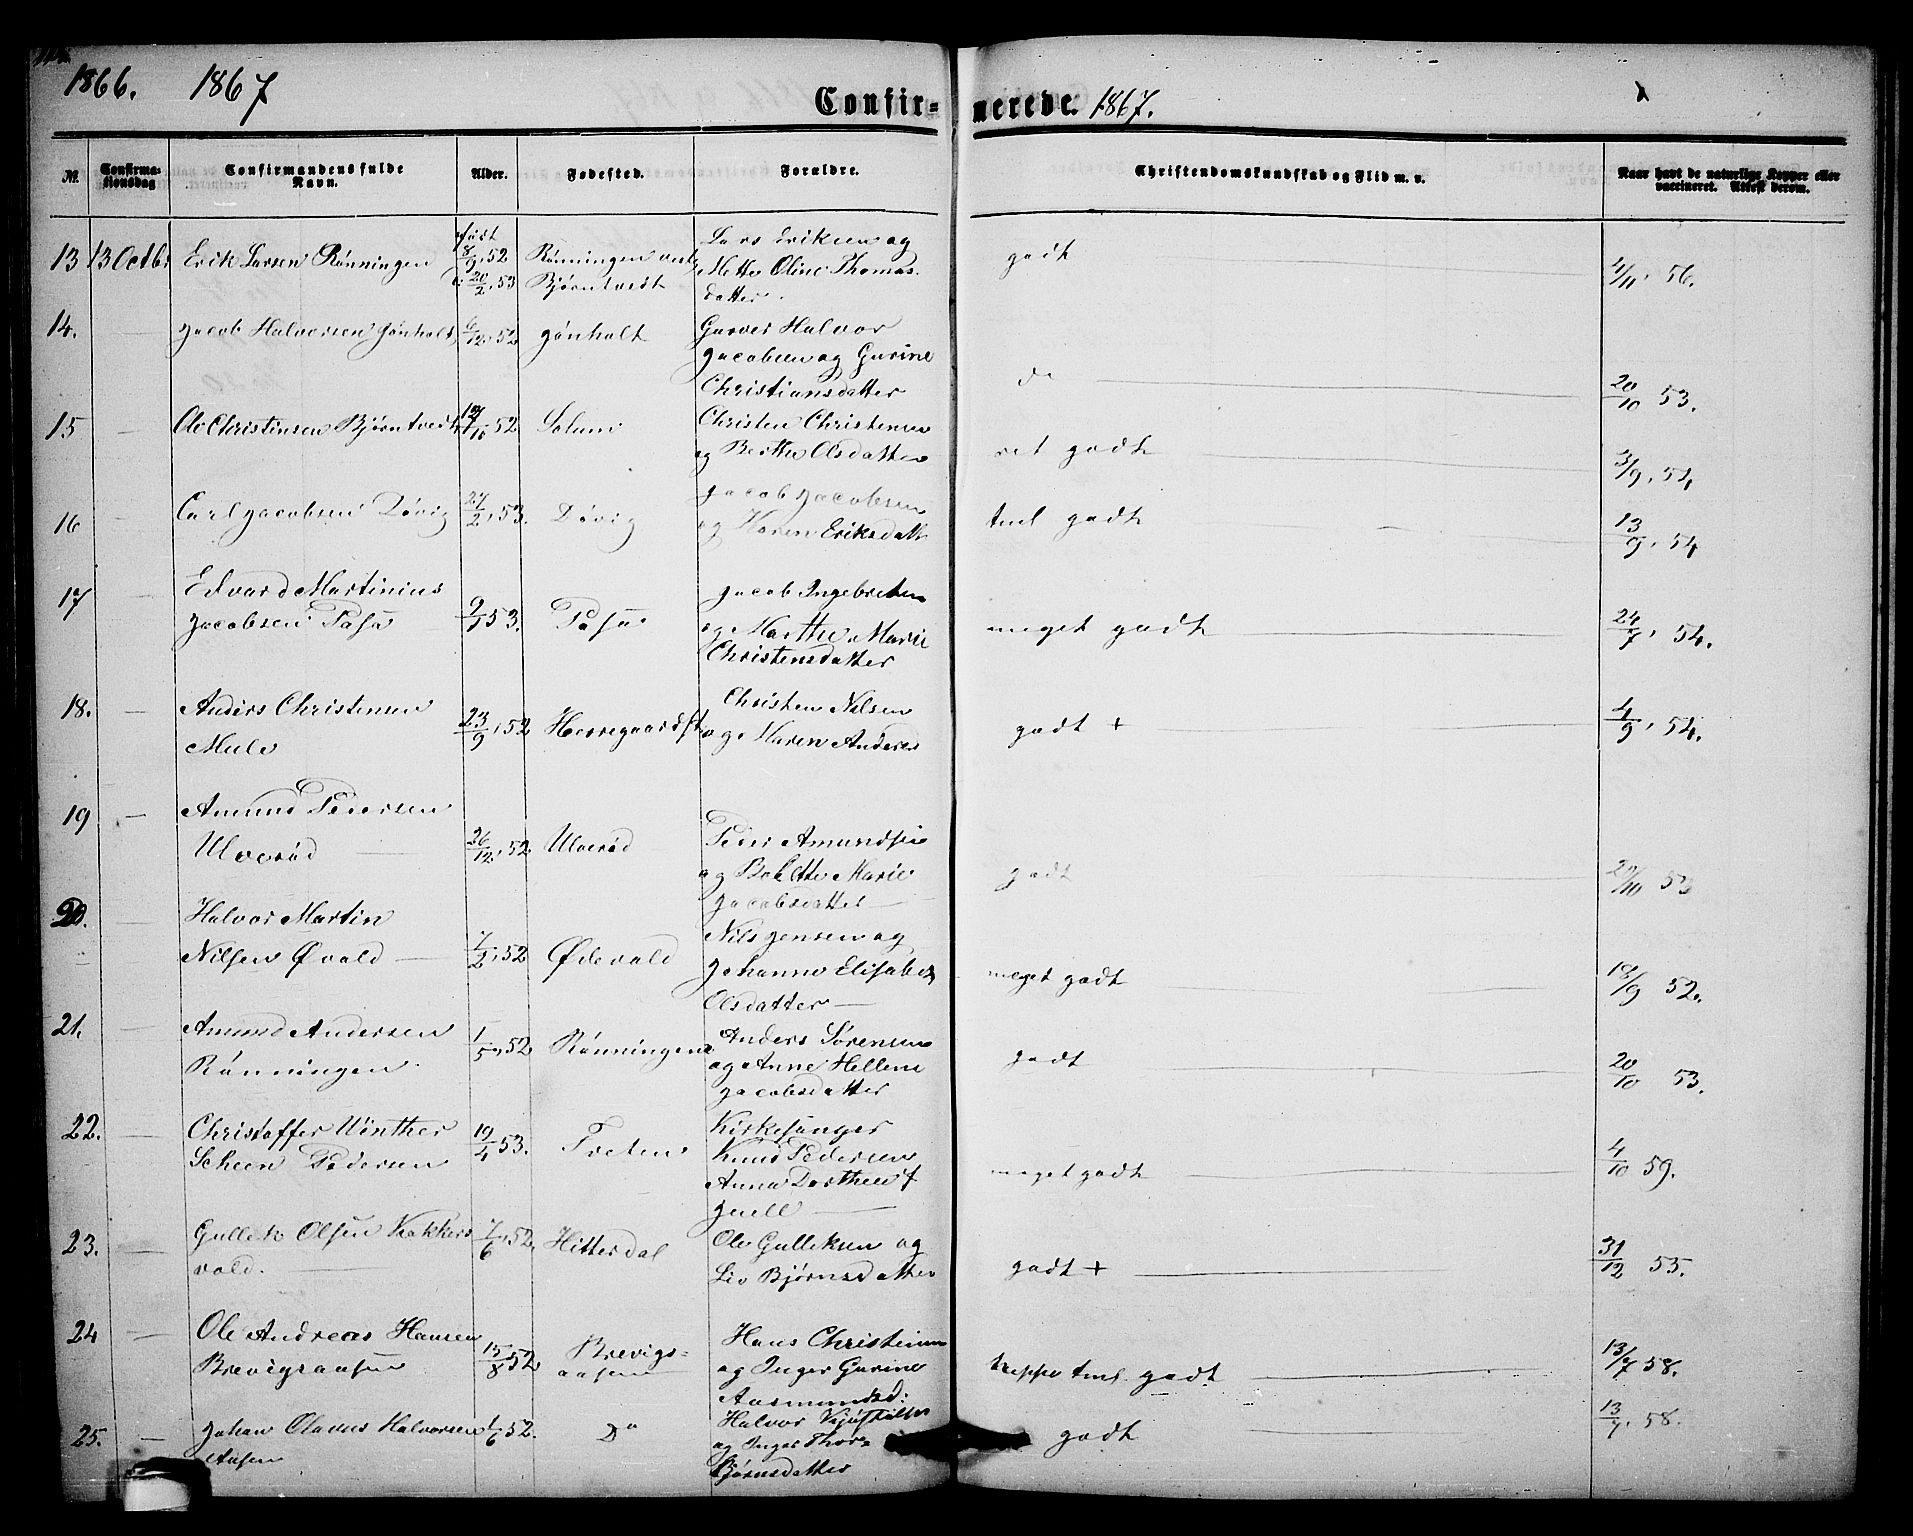 1866. 1867
Confir= merede. 1867.
Nr. Confirma=sionsdag Confirmandens fulde Navn. Alder. Fødested. Forældre. Christendomskundskab og Flid m. v. Naar havt de naturlige Kopper eller vaccineret. Attest derom.
13 13 Octbr Erik Larsen Rønningen født 8/9, 52 d. 20/2, 53 Rønningen Bjørntvedt Lars Eriksen og Mette Oline Thomasdatter. godt 4/11, 56.
14. — Jacob Halvorsen Gönholt 6/12, 52 Gönholt Garver Halvor Jacobsen og Gurine Christiansdatter do 20/10 53.
15 — Ole Christensen Bjørntvedt 52 Solum Christen Christensen og Berthe Olsdatter ret godt 3/9, 54
16 Carl Jacobsen Døvig 27/2, 53. Døvig Jacob Jacobsen og Karen Eriksdatt tml godt 13/9, 54
17 — Edvard Martinius Jacobsen Pasa 9/1 53. Pasa Jacob Ingebretsen og Marthe Marie Christensdatter meget godt 24/7, 54.
18. — Anders Christensen Mule 23/9, 52 Herregaardst Christen Nilsen og Maren Anders godt + 4/9, 54.
19 — Amund Pedersen Ulverød — 26/12, 52. Ulverød Peder Amundsen og Bolette Marie Jacobsdatter — godt 29/10 53
20. — Halvor Martin Nilsen Øvald — 7/2, 52 Ødevald Nils Jensen og Johanne Elisabeth Olsdatter — meget godt 18/9 52.
21. — Amund Andersen Rønningen. 1/5, 52 Rønningen Anders Sørensen og Anne Hellene Jacobsdatter godt 20/10 53.
22. — Christoffer Winther Scheen Pedersen 19/4 53. Treten Kirkesanger Knud Pedersen Anna Dorthea f Juell — meget godt 4/10 59.
23. — Gullek Olsen Kokkersvold. — 7/6, 52. Hitterdal Ole Gulleksen og Liv Bjørnsdatter godt + 31/12 53.
24 — Ole Andreas Hansen Brevigsaasen 15/8 52. Brevigs=aasen Hans Christensen og Inger Gurine Aasmundsd: neppe tml. godt 13/7 58.
25. — Johan Olaves Halvorsen Aasen 1/6 52. Do Halvor og Inger Thorbjørnsdatter godt 13/7, 58.